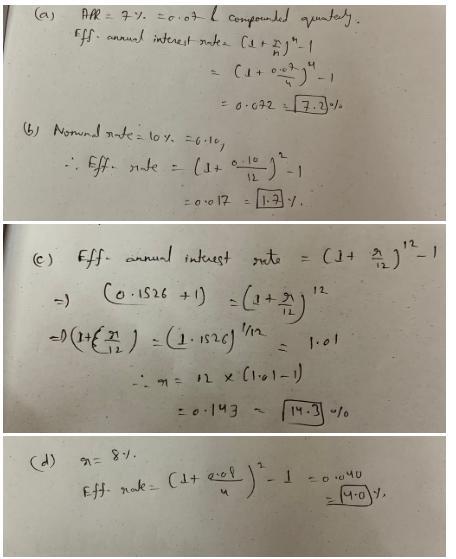 (a) APR = 7% = 0.07 & compounded quarterly.
Eff. annual interest rate = (1 + r/n)^n - 1
= (1 + 0.07/4)^4 - 1
= 0.072 = 7.2%
(b) Nominal rate = 10% = 0.10,
∴ Eff. rate = (1 + 0.10/12)^2 - 1
= 0.017 = 1.7%.
(c) Eff. annual interest rate = (1 + r/12)^12 - 1
=) (0.1526 + 1) = (1 + r/12)^12
=) (1 + r/12) = (1.1526)^1/12 = 1.01
∴ r = 12 × (1.01 - 1)
= 0.143 = 14.3%
(d) r = 8%.
Eff. rate = (1 + 0.08/4)^2 - 1 = 0.040
= 4.0%.